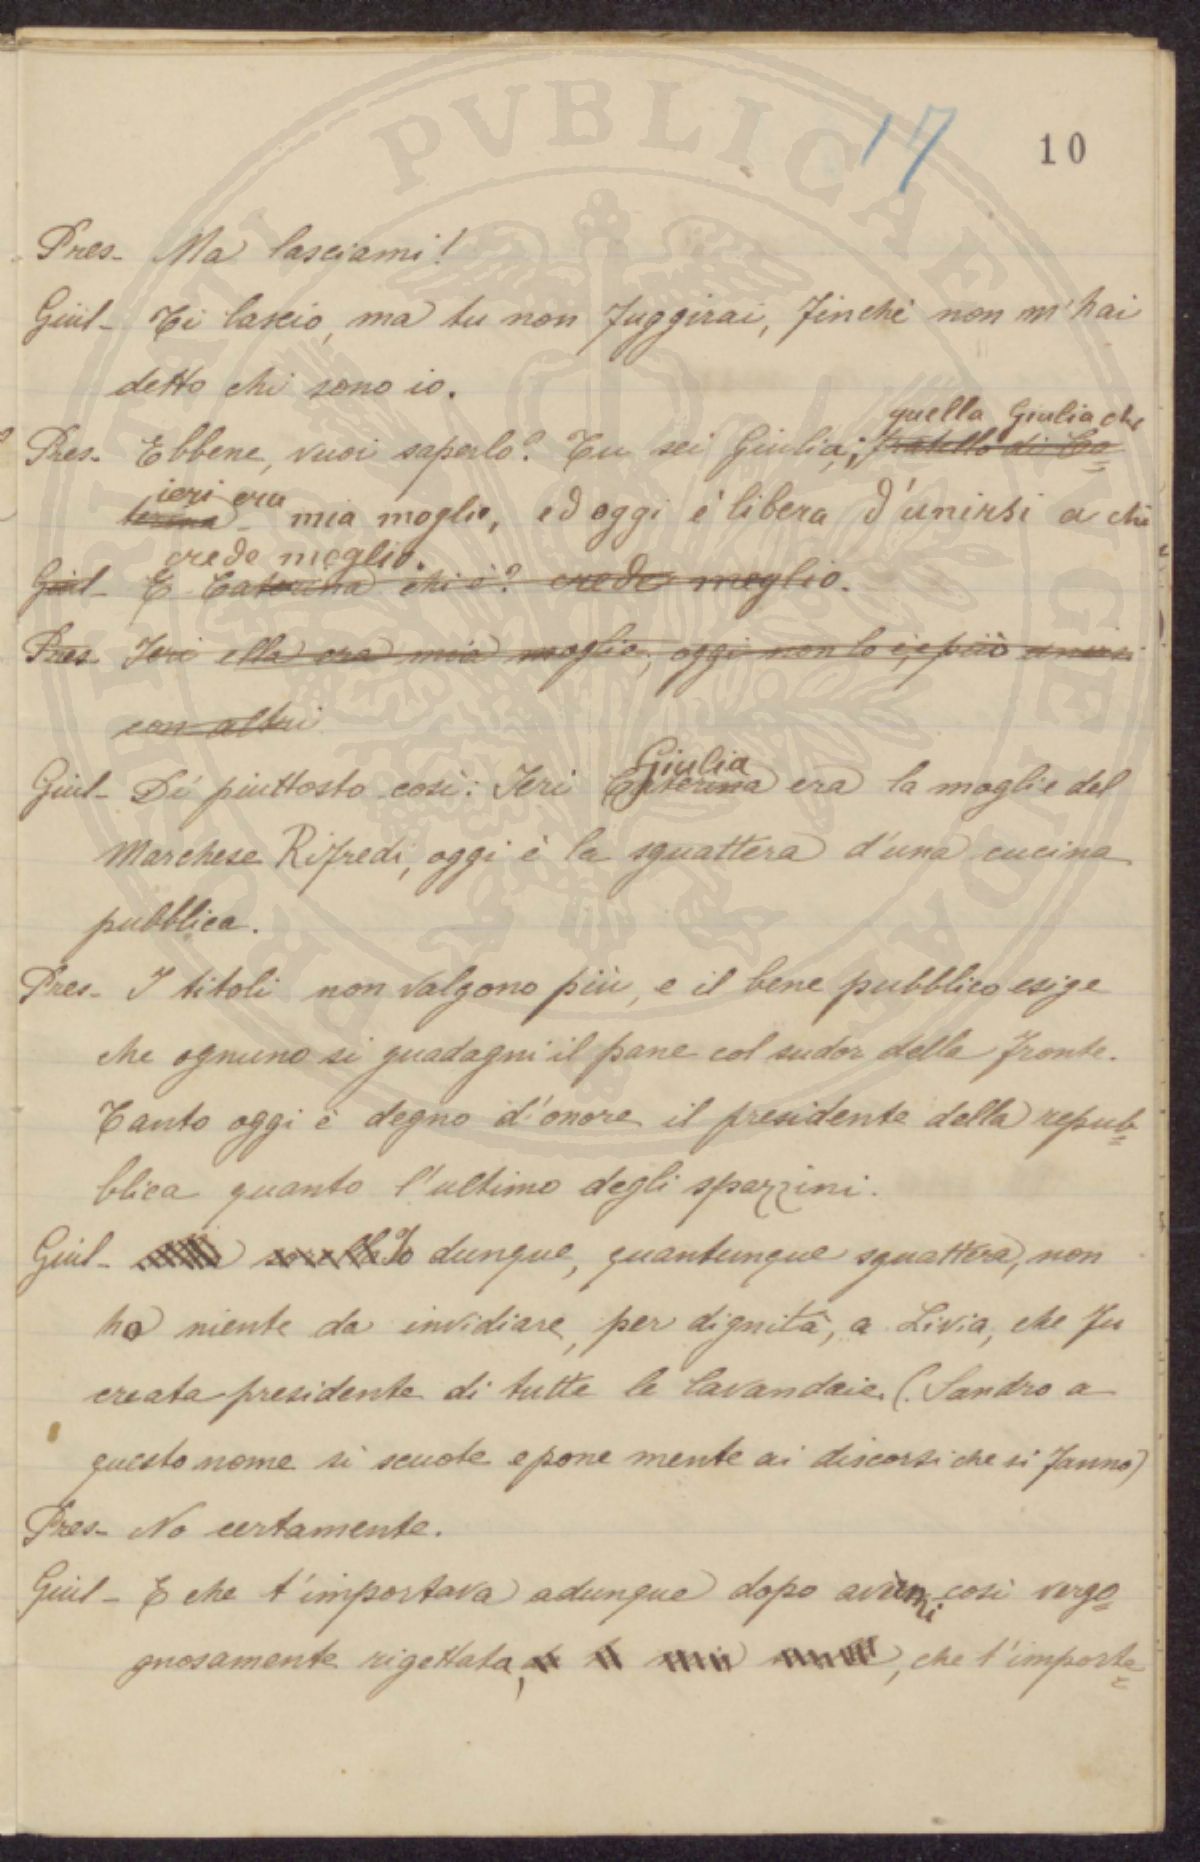 17 10
Pres- Ma lasciami!
Giul- Ti lascio, ma tu non fuggirai, finchè non m'hai
detto chi sono io.
quella Giulia che
Pres- Ebbene, vuoi saperlo? Tu sei Giulia, fratello di Ca=
ieri era
terina - mia moglie, ed oggi è libera d'unirsi a chi
crede meglio.
Giul- E Caterina chi è? crede meglio.
Pres- Ieri ella era mia moglie; oggi non lo è, e può unirsi
con altri
Giulia
Giul- Di' piuttosto così: Ieri Caterina era la moglie del
Marchese Rifredi, oggi è la sguattera d'una cucina
pubblica.
Pres- I titoli non valgono più, e il bene pubblico esige
che ognuno si guadagni il pane col sudor della fronte.
Tanto oggi è degno d'onore il presidente della repub=
blica quanto l'ultimo degli spazzini.
Giul- Io dunque, quantunque sguattera, non
ho niente da invidiare, per dignità, a Livia, che fu
creata presidente di tutte le lavandaie. (Sandro a
questo nome si scuote e pone mente ai discorsi che si fanno)
Pres- No certamente.
Giul- E che t'importava adunque dopo avermi così vergo=
gnosamente rigettata, , che t'importa=
PUBLICAE